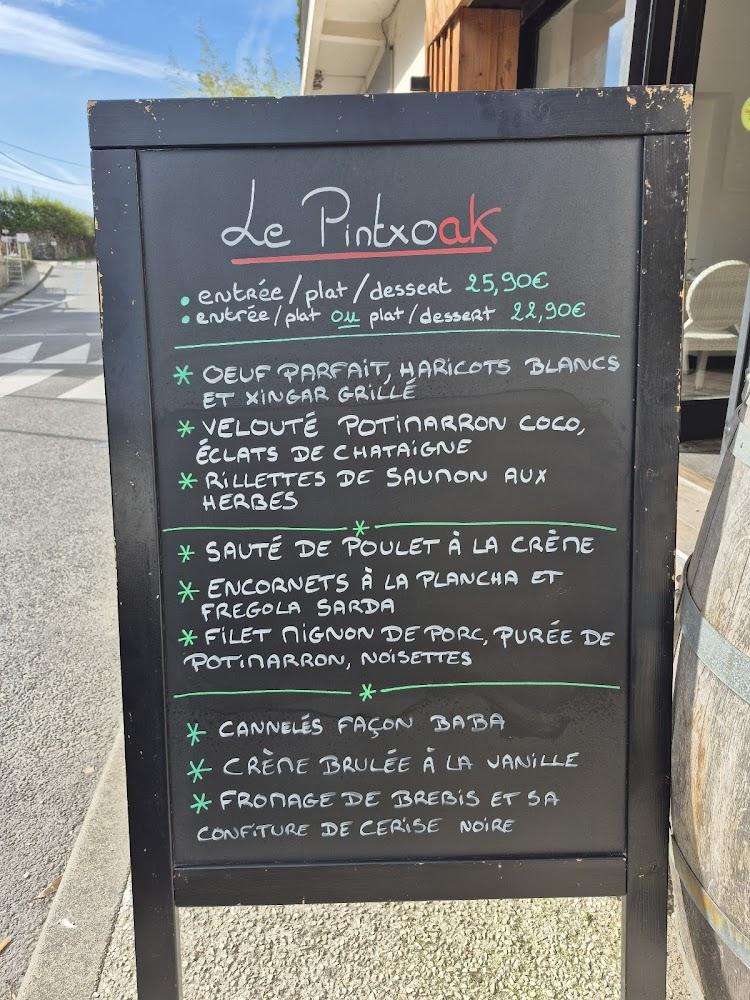 Le Pintxoak
• entrée/plat/dessert 25,90€
• entrée/plat ou plat/dessert 22,90€
* OEUF PARFAIT, HARICOTS BLANCS
ET XINGAR GRILLÉ
* VELOUTÉ POTIMARRON COCO,
ÉCLATS DE CHATAIGNE
* RILLETTES DE SAUMON AUX
HERBES
* SAUTÉ DE POULET À LA CRÈME
* ENCORNETS À LA PLANCHA ET
FREGOLA SARDA
* FILET MIGNON DE PORC, PURÉE DE
POTIMARRON, NOISETTES
* CANNELÉS FAÇON BABA
* CRÈME BRULÉE À LA VANILLE
* FROMAGE DE BREBIS ET SA
CONFITURE DE CERISE NOIRE